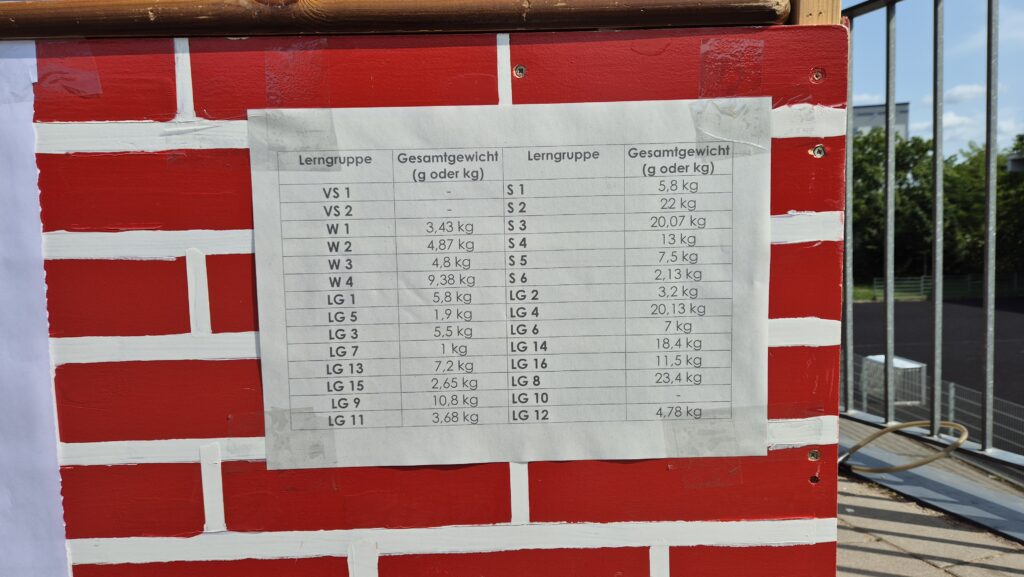 Lerngruppe Gesamtgewicht (g oder kg) Lerngruppe Gesamtgewicht (g oder kg)
VS 1 - S 1 5,8 kg
VS 2 - S 2 22 kg
W 1 3,43 kg S 3 20,07 kg
W 2 4,87 kg S 4 13 kg
W 3 4,8 kg S 5 7,5 kg
W 4 9,38 kg S 6 2,13 kg
LG 1 5,8 kg LG 2 3,2 kg
LG 5 1,9 kg LG 4 20,13 kg
LG 3 5,5 kg LG 6 7 kg
LG 7 1 kg LG 14 18,4 kg
LG 13 7,2 kg LG 16 11,5 kg
LG 15 2,65 kg LG 8 23,4 kg
LG 9 10,8 kg LG 10 -
LG 11 3,68 kg LG 12 4,78 kg